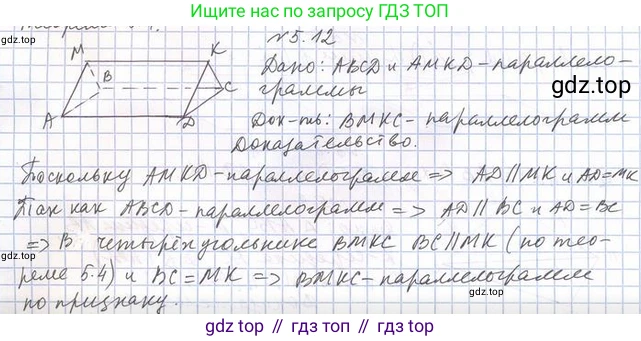 Ищет нас по запросу ГДЗ ТОП
gdz.top
№5.12
M K
B C
A D
Дано: ABCD и AMKD - параллело-
граммы
gdz.top
Док-ть: BMKC - параллелограмм
Доказательство.
Поскольку AMKD - параллелограмм => AD || MK и AD = MK
Так как ABCD - параллелограмм => AD || BC и AD = BC
=> В четырёхугольнике BMKC BC || MK (по тео-
gdz.top
реме 5.4) и BC = MK => BMKC - параллелограмм
по признаку.
gdz.top // gdz.top // gdz.top // gdz.top